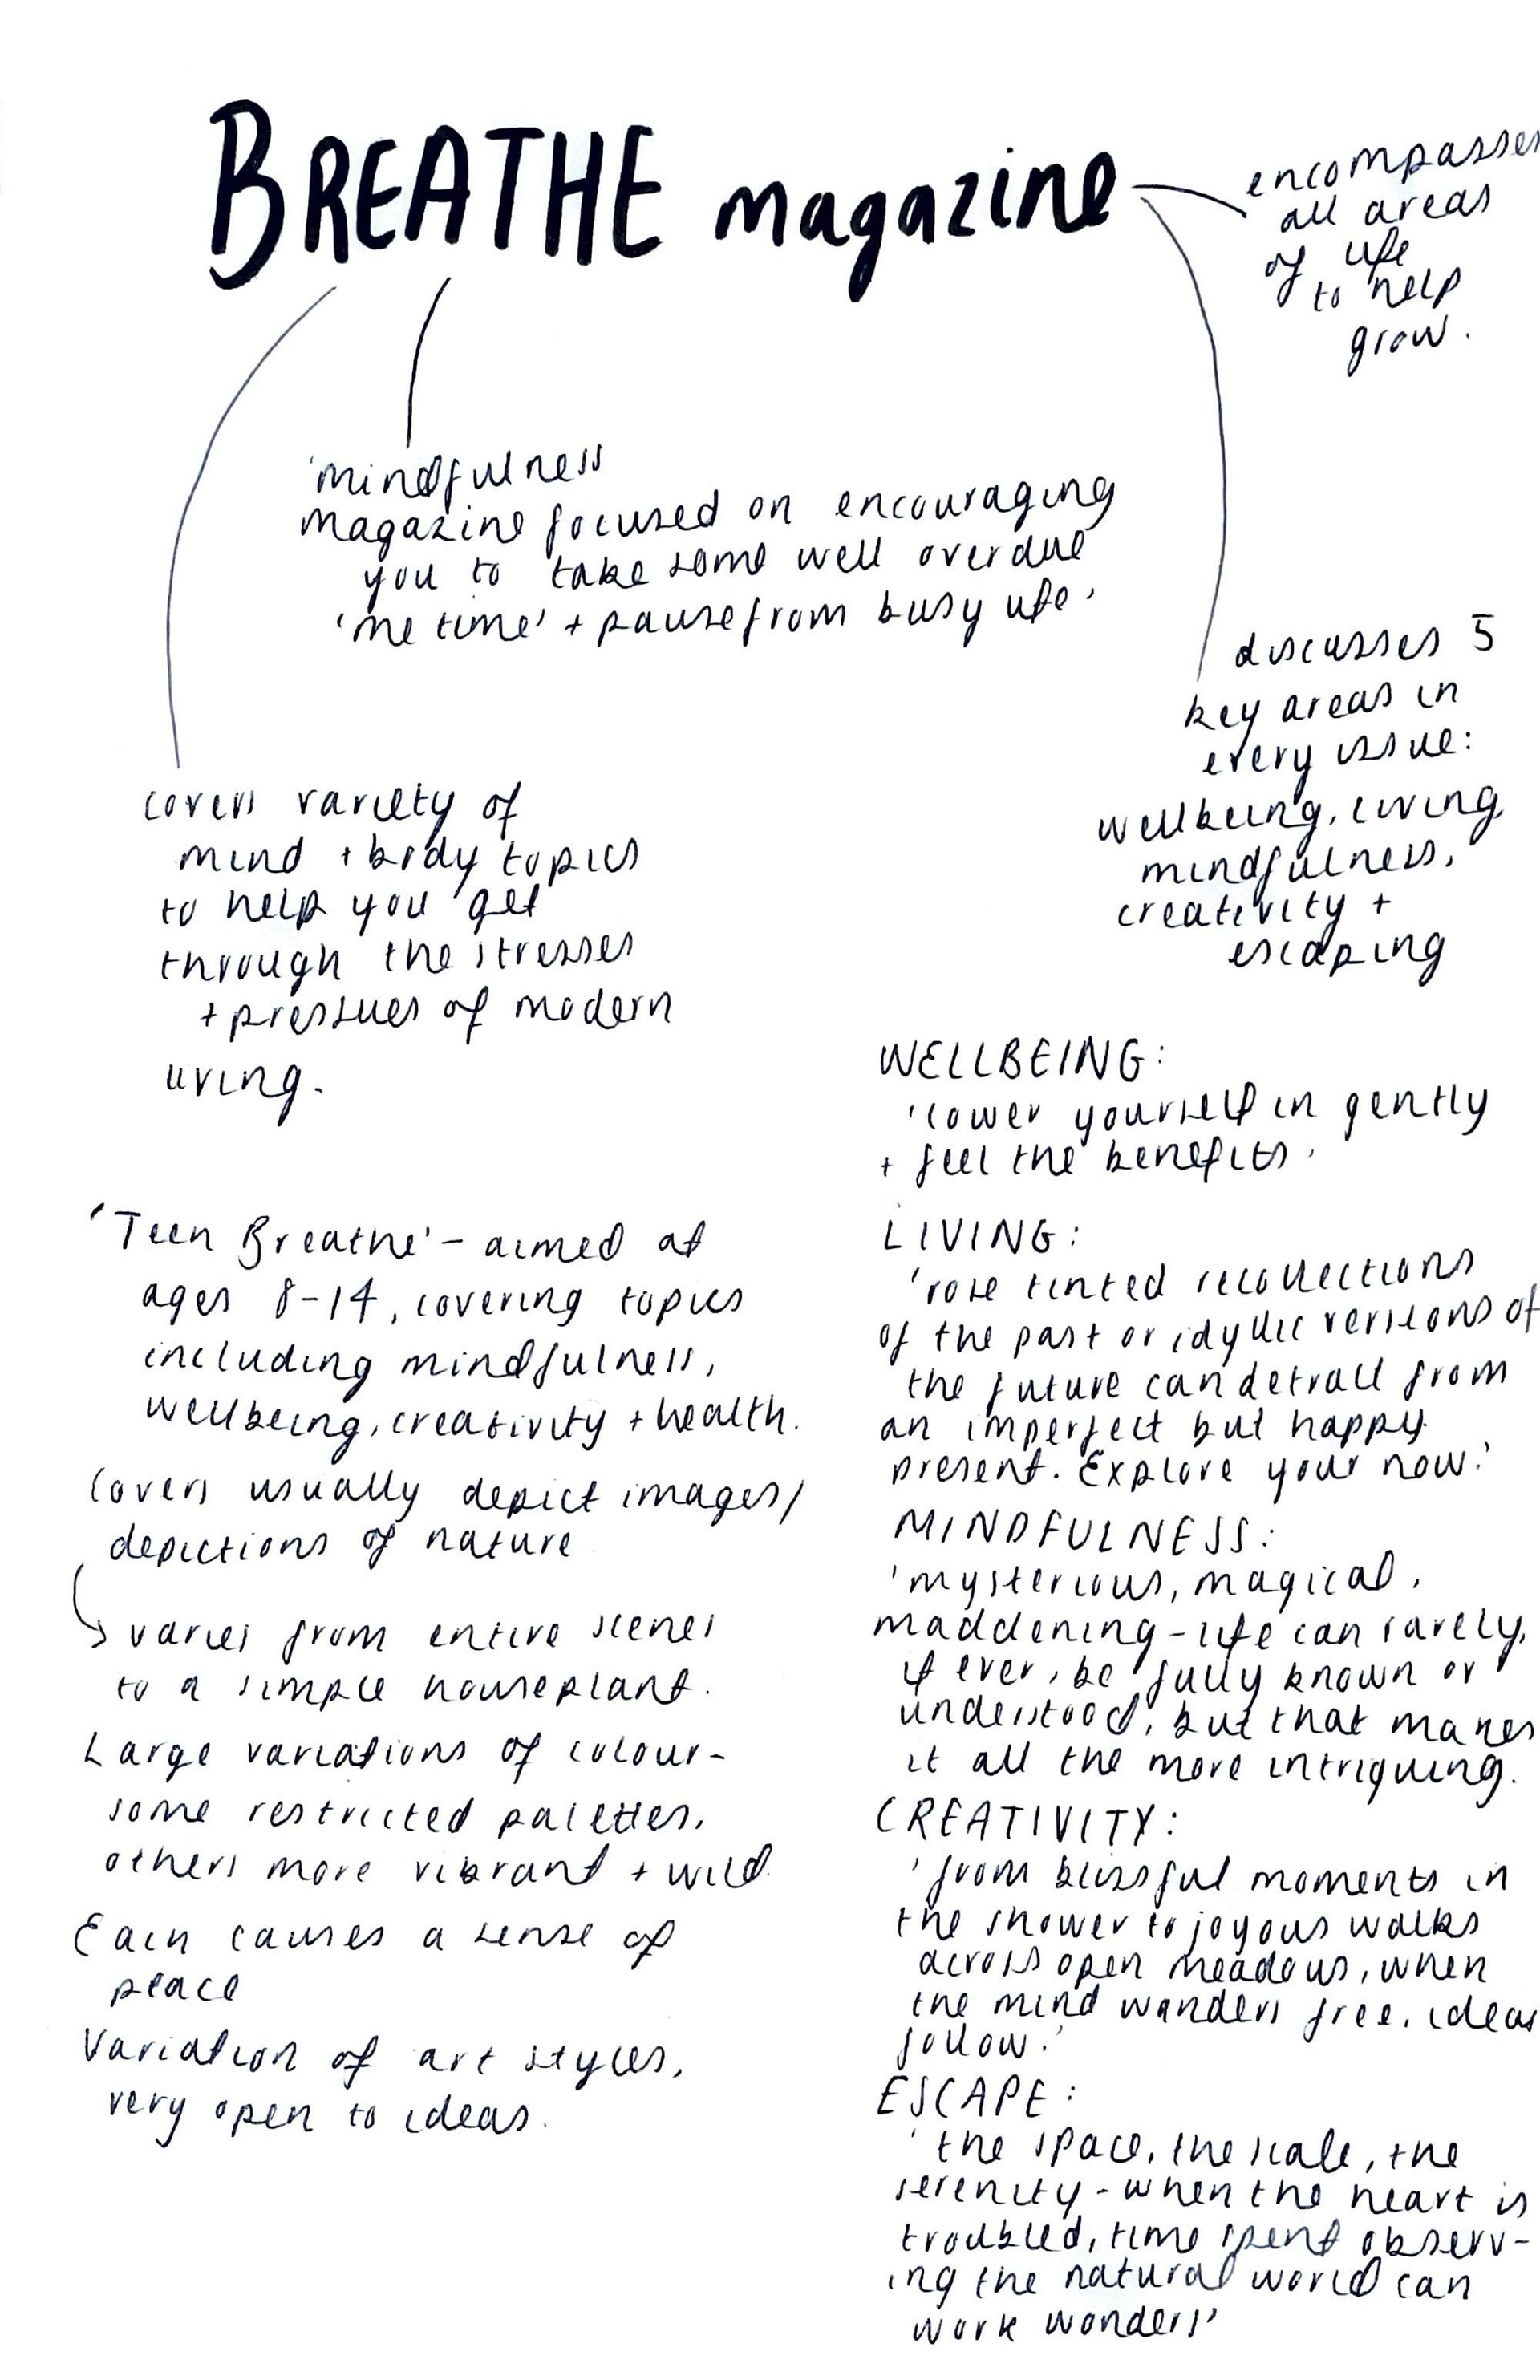 BREATHE magazine
encompasses
all areas
of life
to help
grow.
'mindfulness
magazine focused on encouraging
you to take some well overdue
'me time' + pause from busy life'
discusses 5
key areas in
every issue:
wellbeing, living
mindfulness,
creativity +
escaping
covers variety of
mind + body topics
to help you get
through the stresses
+ pressues of modern
living.
'Teen Breathe' - aimed at
ages 8-14, covering topics
including mindfulness,
wellbeing, creativity + health.
Covers usually depict images/
depictions of nature
↳ varies from entire scenes
to a simple houseplant.
Large variations of colour-
some restricted palettes,
others more vibrant + wild
Each causes a sense of
peace
Variation of art styles,
very open to ideas.
WELLBEING:
'lower yourself in gently
+ feel the benefits'
LIVING:
'rose tinted recollections
of the past or idyllic versions of
the future can detrall from
an imperfect but happy
present. Explore your now.'
MINDFULNESS:
'mysterious, magical,
maddening - life can rarely,
if ever, be fully known or
understood, but that makes
it all the more intriguing.
CREATIVITY:
'from blissful moments in
the shower to joyous walks
across open meadows, when
the mind wanders free, ideas
follow.'
ESCAPE:
'the space, the scale, the
serenity - when the heart is
troubled, time spent observ-
ing the natural world can
work wonders'